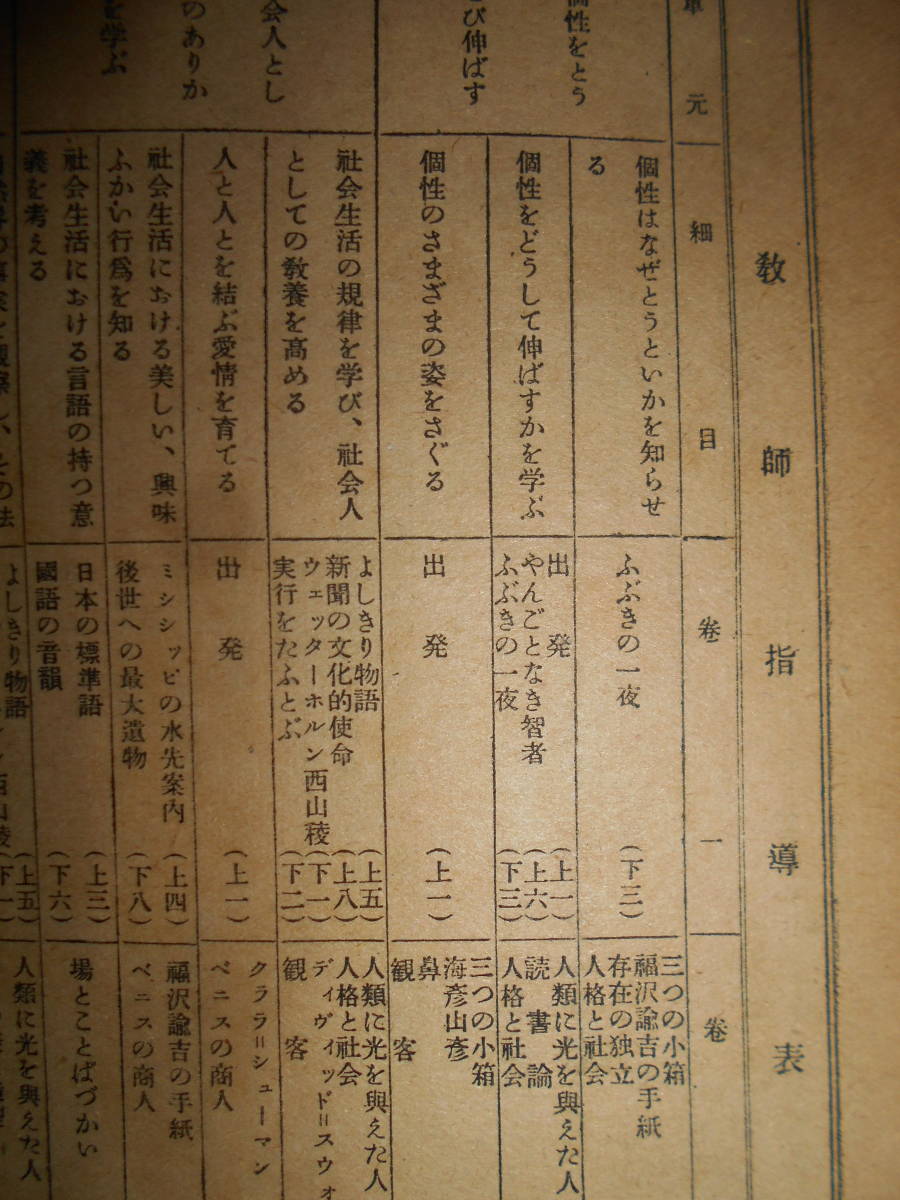 教師指導表
単元
細目
巻一
巻
個性をとう
び伸ばす
個性はなぜとうといかを知らせ
る
ふぶきの一夜
(下三)
三つの小箱
福沢諭吉の手紙
存在の独立
人格と社会
個性をどうして伸ばすかを学ぶ
出発
(上一)
やんごとなき智者
(上六)
ふぶきの一夜
(下三)
人類に光を與えた人
読書論
人格と社会
個性のさまざまの姿をさぐる
出発
(上一)
三つの小箱
海彦山彦
鼻
観客
会人とし
のありか
を学ぶ
社会生活の規律を学び、社会人
としての教養を高める
よしきり物語
(上五)
新聞の文化的使命
(上八)
ウェッターホルン西山稜
(下一)
実行をたふとぶ
(下二)
人類に光を與えた人
人格と社会
ディヴィッド=スウォ
観客
人と人とを結ぶ愛情を育てる
出発
(上一)
クララ=シューマン
ベニスの商人
社会生活における美しい、興味
ふかい行爲を知る
ミシシッピの水先案内
(上四)
後世への最大遺物
(下八)
福沢諭吉の手紙
ベニスの商人
社会生活における言語の持つ意
義を考える
日本の標準語
(上三)
國語の音韻
(下六)
場とことばづかい
よしきり物語
(上五)
西山稜
(下一)
人類に光を與えた人